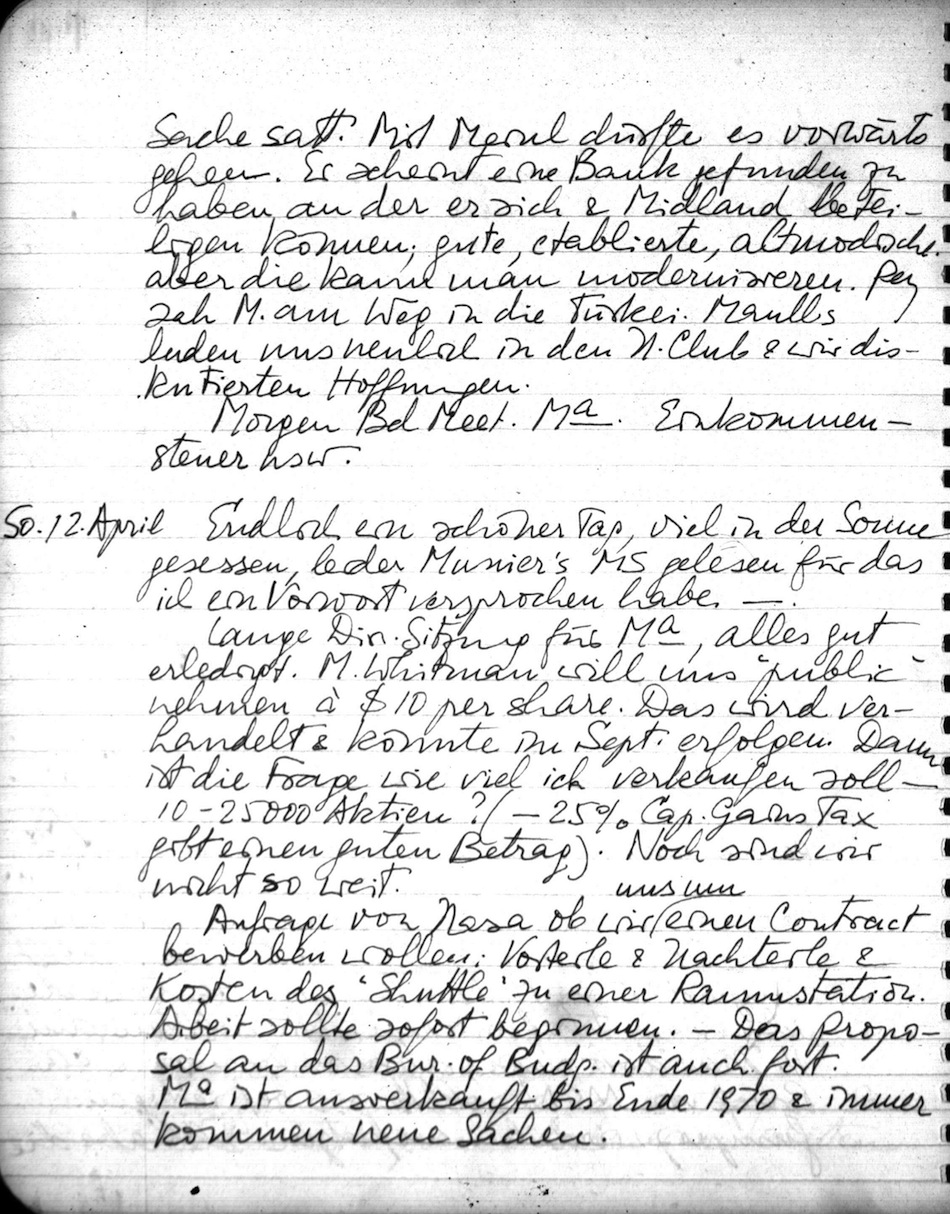 Sache satt. Mit Meml dürfte es vorwärts
gehen. Er scheint eine Bank gefunden zu
haben an der er sich & Midland betei-
ligen können; gute, etablierte, altmodische.
aber die kann man modernisieren.
sah M. am Weg in die Türkei. Maulls
luden uns neulich in den N. Club & wir dis-
kutierten Hoffnungen.
Morgen Bd Meet. Ma. Einkommen-
steuer usw.
So. 12. April Endlich ein schöner Tag, viel in der Sonne
gesessen, leider Musnier's MS gelesen für das
ich ein Vorwort versprochen habe. —.
Lange Dir. Sitzung für Ma, alles gut
erledigt. M. Whitman will uns "public"
nehmen à $10 per share. Das wird ver-
handelt & könnte im Sept. erfolgen. Dann
ist die Frage wie viel ich verkaufen soll —
10-25000 Aktien? (— 25% Cap. Gains Tax
gibt einen guten Betrag). Noch sind wir
nicht so weit.
Anfrage von Nasa ob wir uns um einen Contract
bewerben wollen: Vorteile & Nachteile &
Kosten des 'Shuttle' zu einer Raumstation.
Arbeit sollte sofort beginnen. — Das propo-
sal an das Bur. of Budg. ist auch fort.
Ma ist ausverkauft bis Ende 1970 & immer
kommen neue Sachen.